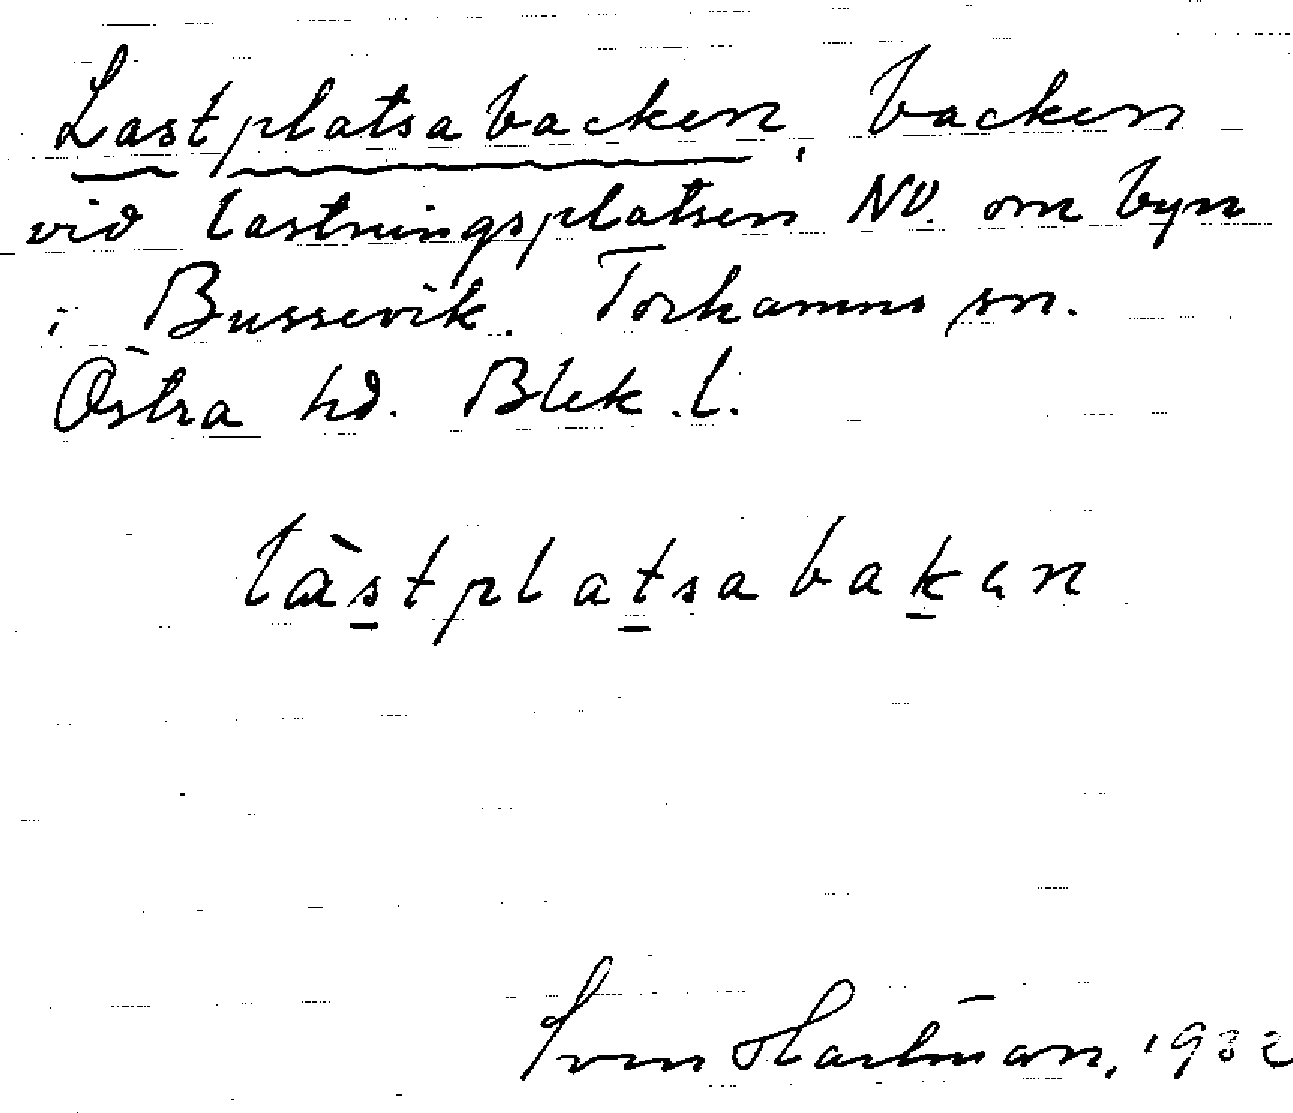 Lastplatsabacken, backen
vid lastningsplatsen NV. om byn
i Bussevik. Torhamns sn.
Östra hd. Blek. l.
làstplatsabakən
Sven Hartman, 1932